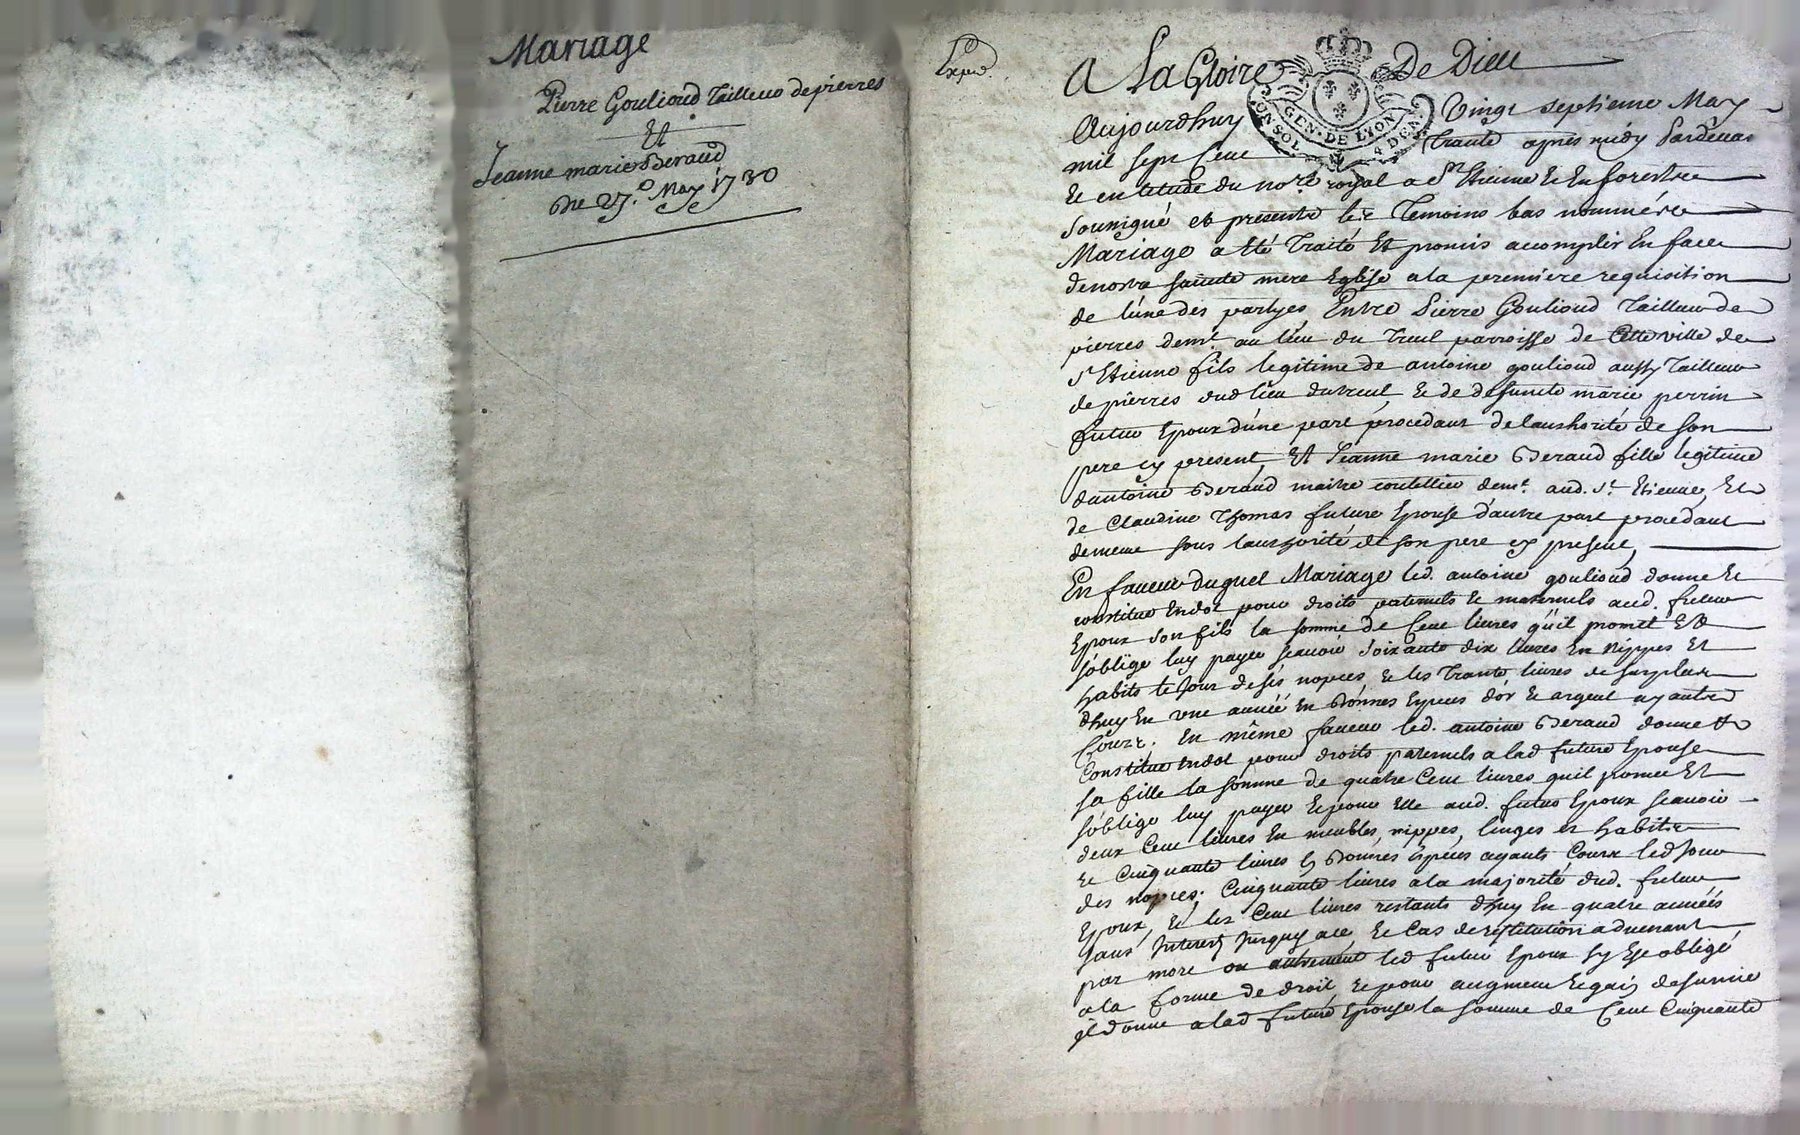 Mariage
Pierre Goulioud Tailleur de pierres
Et
Jeanne marie Beraud
Du 27.e May 1730
Exped.
A La Gloire De Dieu
GEN. DE LYON
UN SOL 4 DEN.
Aujourdhuy Vingt septieme May
mil sept Cent Trante apres midy Pardevant
le
Soussigné et presents les Temoins bas nommés
Mariage a été Traité Et promis accomplir En face
de nostre sainte mere Eglise a la premiere requisition
de l'une des partyes, Entre Pierre Goulioud Tailleur de
pierres demt. au lieu du Treul parroisse de Cette ville de
St Etienne fils legitime de antoine goulioud aussy Tailleur
de pierres dud lieu du treul Et de defuncte marie perrin
futur Epoux d'une part procedant de l'authorité de son
pere cy present, Et Jeanne marie Beraud fille legitime
d'antoine Beraud maitre coutellier demt. aud. St. Etienne, Et
de Claudine Thomas future Epouse d'autre part procedant
de meme sous l'authorité de son pere cy present,
En faveur duquel Mariage led. antoine goulioud donne Et
constitue En dot pour droits paternels Et maternels aud. futur
Epoux son fils la somme de Cent livres qu'il promet Et
s'oblige luy payer scavoir soixante dix livres En Nippes Et
habits le Jour de ses nopces, Et les Trante livres de surplus
d'huy En une année En Bonnes Especes d'or Et argent ayant
Cours. En même faveur led. antoine Beraud donne Et
Constitue En dot pour droits paternels a lad future Epouse
sa fille la somme de quatre Cent livres qu'il promet Et
s'oblige luy payer Et pour Elle aud. futur Epoux scavoir
deux Cent livres En meubles, nippes, linges et habits
Et Cinquante livres En Bonnes Especes ayants Cours led Jour
des nopces. Cinquante livres a la majorité dud. futur
Epoux, Et les Cent livres restants d'huy En quatre années
sans Interest Jusqu'alors Et Cas de restitution advenant
par mort ou autrement led futur Epoux s'y Est obligé
a la forme de droit Et pour augment Et gain de survie
il donne a lad future Epouse la somme de Cent Cinquante